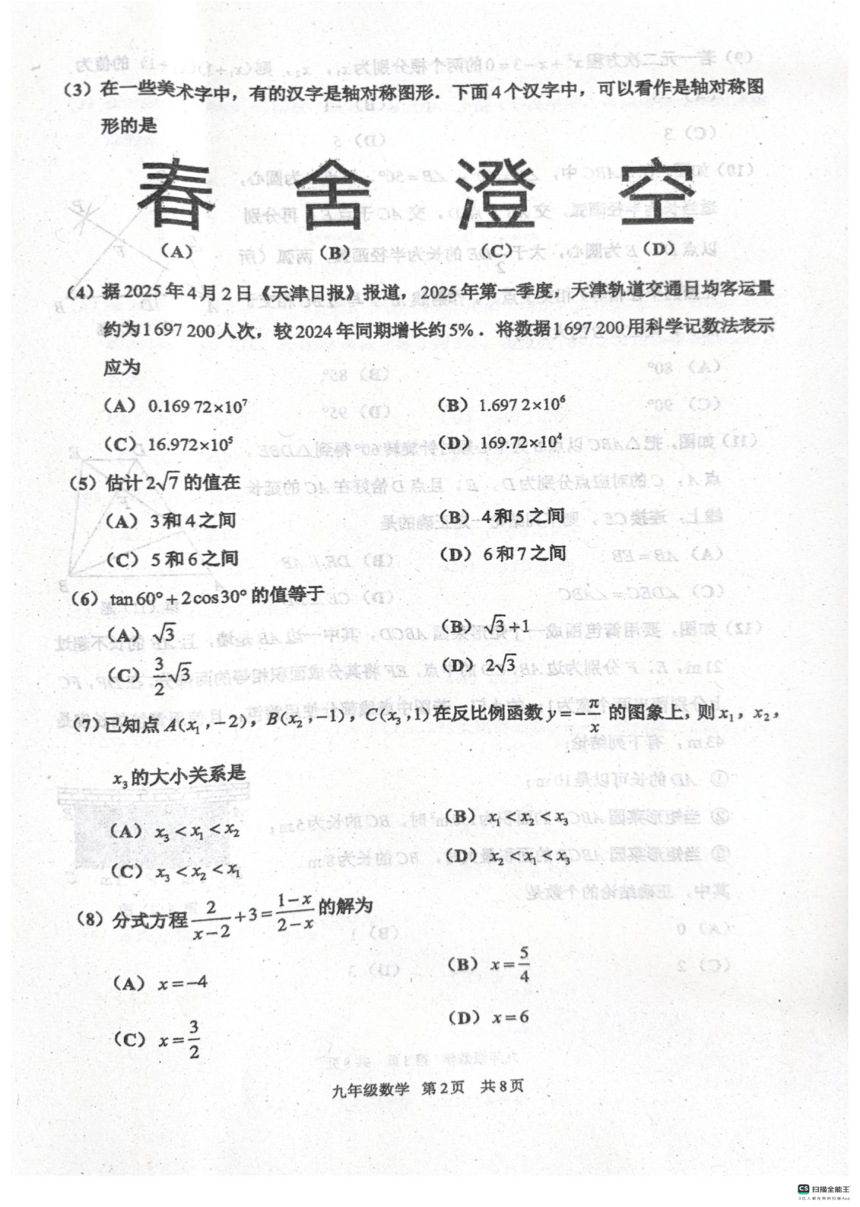 (3) 在一些美术字中，有的汉字是轴对称图形．下面4个汉字中，可以看作是轴对称图
形的是
春 舍 澄 空
(A) (B) (C) (D)
(4) 据2025年4月2日《天津日报》报道，2025年第一季度，天津轨道交通日均客运量
约为1 697 200人次，较2024年同期增长约5%．将数据1 697 200用科学记数法表示
应为
(A) 0.169 72×10⁷ (B) 1.697 2×10⁶
(C) 16.972×10⁵ (D) 169.72×10⁴
(5) 估计2√7的值在
(A) 3和4之间 (B) 4和5之间
(C) 5和6之间 (D) 6和7之间
(6) tan60°+2cos30°的值等于
(A) √3 (B) √3+1
(C) 3/2√3 (D) 2√3
(7) 已知点A(x₁,-2)，B(x₂,-1)，C(x₃,1)在反比例函数y=-π/x的图象上，则x₁，x₂，
x₃的大小关系是
(A) x₃<x₁<x₂ (B) x₁<x₂<x₃
(C) x₃<x₂<x₁ (D) x₂<x₁<x₃
(8) 分式方程2/(x-2)+3=(1-x)/(2-x)的解为
(A) x=-4 (B) x=5/4
(C) x=3/2 (D) x=6
九年级数学 第2页 共8页
CS 扫描全能王